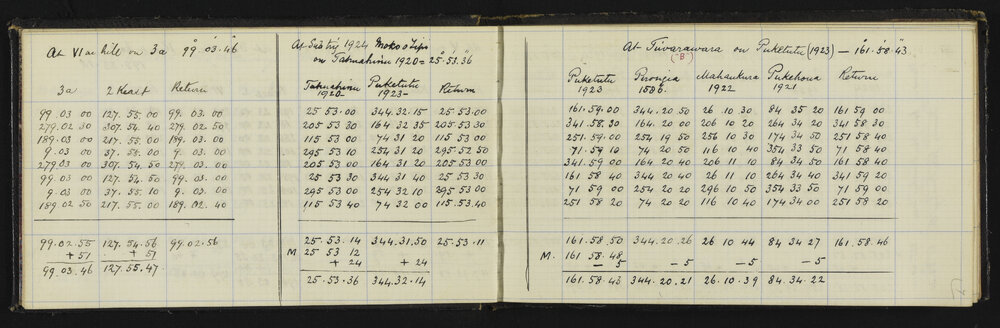 At VI on hill on 3a 99°.03'.46"
3a 2 Kent Return
99. 03 00 127. 55. 00 99. 03. 00
279. 02. 30 307. 54. 40 279. 02. 50
189. 03. 00 217. 55. 00 189. 03. 00
9. 03 00 37. 55. 00 9. 03. 00
279 03 00 307. 54. 50 279. 03. 00
99. 03 00 127. 54. 50 99. 03. 00
9. 03 00 37. 55. 10 9. 03. 00
189. 02 50 217. 55. 00 189. 02. 40
99. 02. 55 127. 54. 56 99. 02. 56
+ 51 + 51
99. 03. 46 127. 55. 47
At 1924
on Tahuahinu 1920 = 25°.53'.36"
Tahuahinu Puketutu Return
1920 1923
25 53. 00 344. 32. 15 25 53. 00
205 53 30 164 32 35 205 53 30
115 53 00 74 31 20 115 53 00
295 53 10 254 31 20 295 52 50
205 53 00 164 31 20 205 53 00
25 53 30 344 31 40 25 53 30
295 53 00 254 32 10 295 53 00
115 53 40 74 32 00 115. 53. 40
25. 53 . 14 344. 31. 50 25. 53 . 11
M 25 53 12
+ 24 + 24
25. 53. 36 344. 32. 14
At Tuwarawara on Puketutu (1923) — 161°.58'.43"
("B")
Puketutu Pirongia Mahaukura Pukehoua Return
1923 1586. 1922 1921
161. 59. 00 344. 20 50 26 10 30 84 35 20 161 59 00
341. 58. 30 164. 20 00 206 10 20 264 34 20 341 58 30
251. 59. 00 254 19 50 256 10 30 174 34 50 251 58 40
71. 59 10 74 20 50 116 10 40 354 33 50 71 58 40
341. 59 00 164 20 40 206 11 10 84 34 50 161 58 40
161 58 40 344 20 40 26 11 10 264 34 40 341 59 20
71 59 00 254 20 20 296 10 50 354 33 50 71 59 00
251 58 20 74 20 20 116 10 40 174 34 00 251 58 20
161. 58. 50 344. 20. 26 26 10 44 84 34 27 161. 58 46
M. 161 58. 48
— 5 — 5 — 5 — 5
161. 58. 43 344. 20. 21 26. 10. 39 84. 34. 22